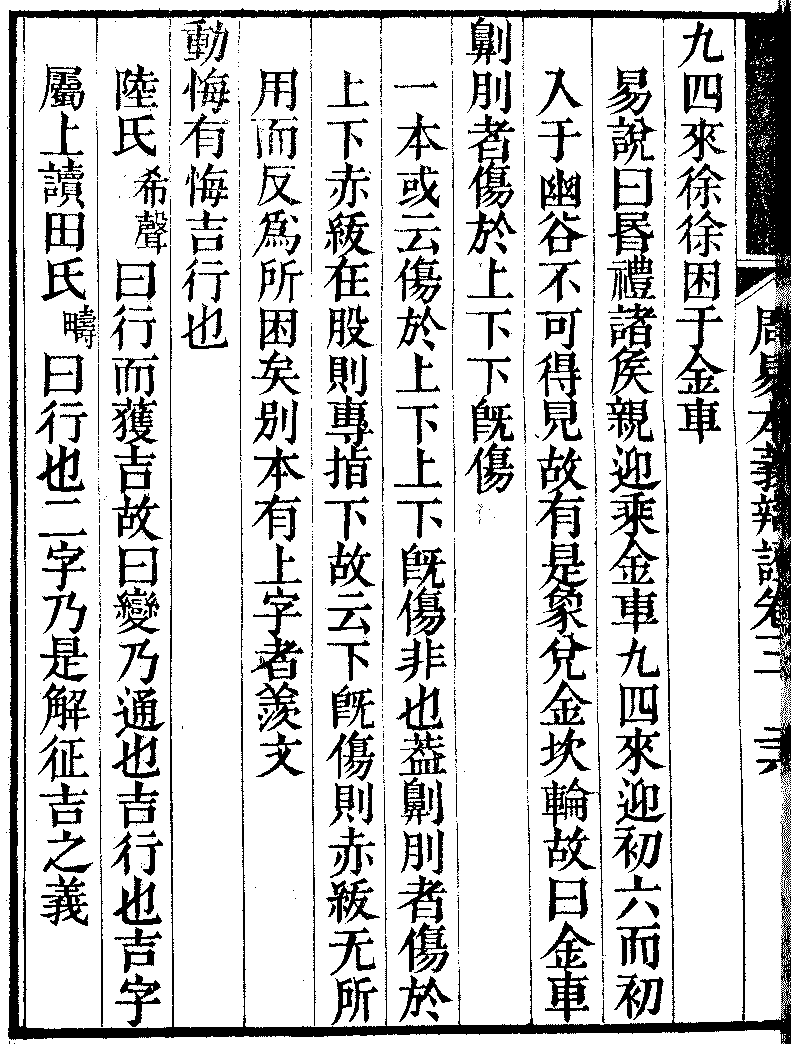 周易本義辯證卷三
九四來徐徐困于金車
易說曰昬禮諸矦親迎乘金車九四來迎初六而初
入于幽谷不可得見故有是象兌金坎輪故曰金車
劓刖者傷於上下下旣傷
一本或云傷於上下上下旣傷非也葢劓刖者傷於
上下赤紱在股則專指下故云下旣傷則赤紱无所
用而反爲所困矣别本有上字者羨文
動悔有悔吉行也
陸氏希聲曰行而獲吉故曰變乃通也吉行也吉字
屬上讀田氏疇曰行也二字乃是解征吉之義